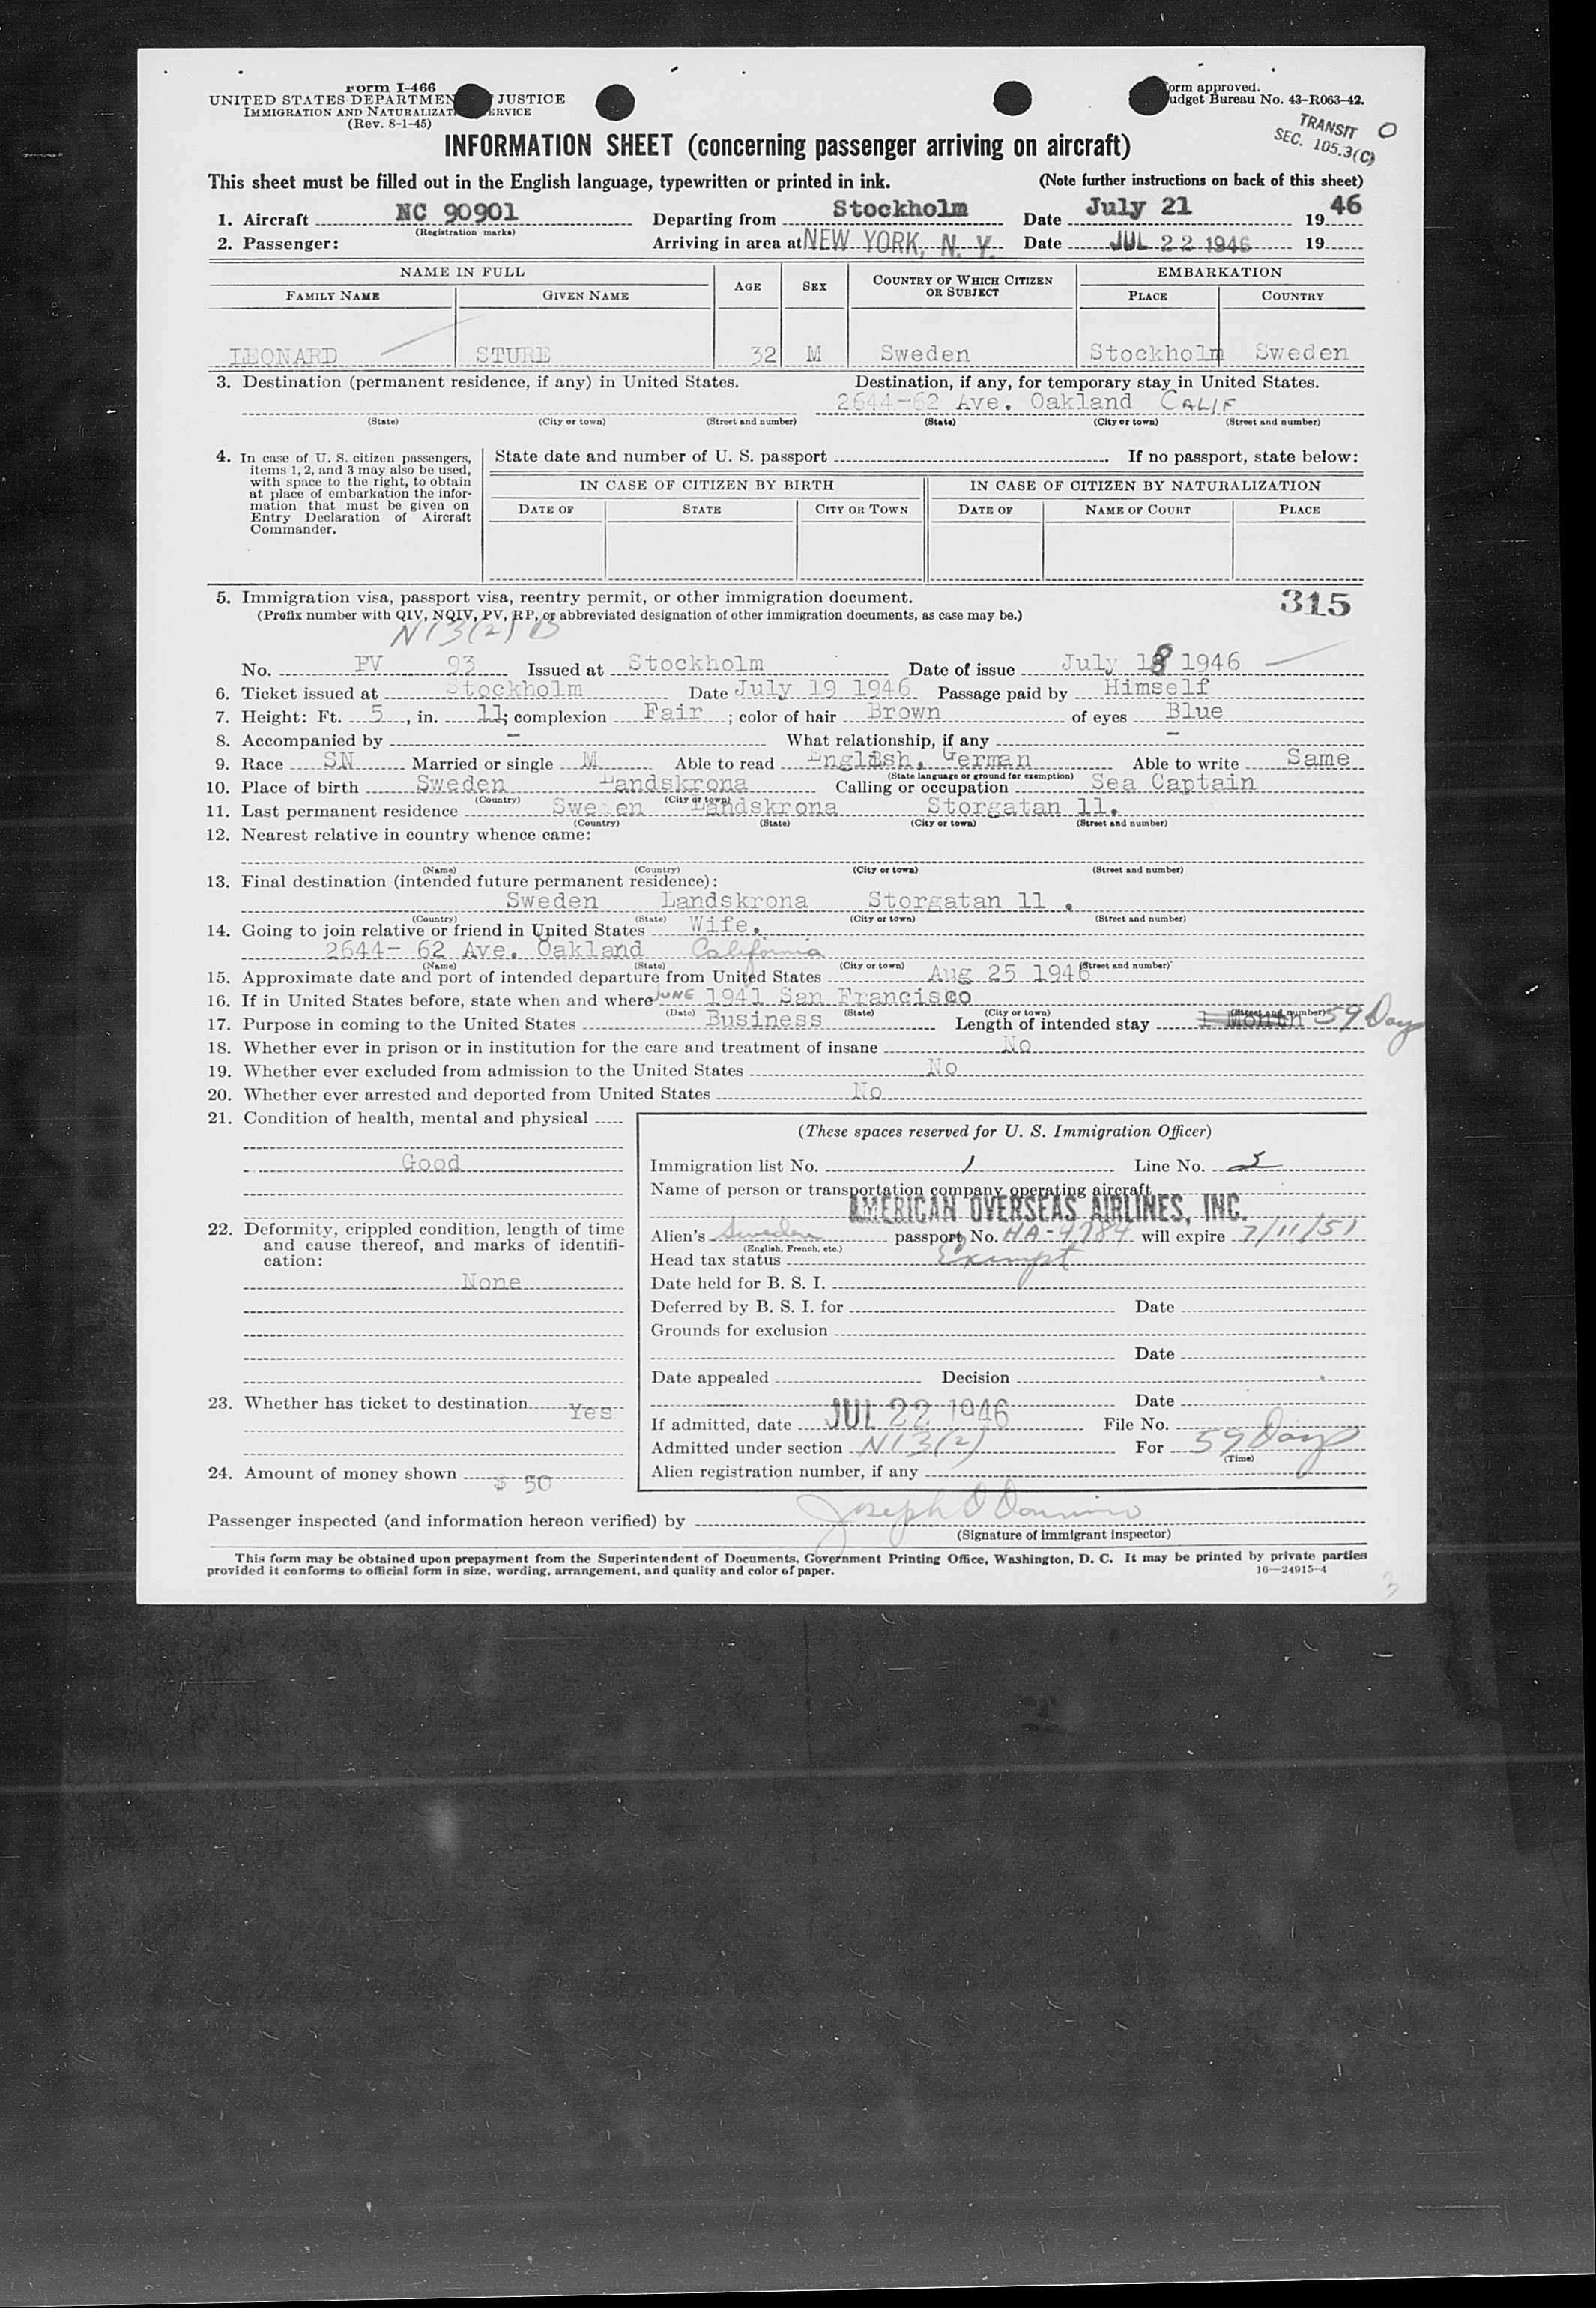 Form I-466 Form approved.
UNITED STATES DEPARTMENT JUSTICE Budget Bureau No. 43-R063-42.
IMMIGRATION AND NATURALIZATION SERVICE
(Rev. 8-1-45)
TRANSIT O
SEC. 105.3(C)
INFORMATION SHEET (concerning passenger arriving on aircraft)
This sheet must be filled out in the English language, typewritten or printed in ink. (Note further instructions on back of this sheet)
1. Aircraft NC 90901 Departing from Stockholm Date July 21 1946
(Registration marks)
2. Passenger: Arriving in area at NEW YORK, N. Y. Date JUL 22 1946 19
NAME IN FULL AGE SEX COUNTRY OF WHICH CITIZEN OR SUBJECT EMBARKATION
FAMILY NAME GIVEN NAME PLACE COUNTRY
LEONARD STURE 32 M Sweden Stockholm Sweden
3. Destination (permanent residence, if any) in United States. Destination, if any, for temporary stay in United States.
2644-62 Ave. Oakland CALIF
(State) (City or town) (Street and number) (State) (City or town) (Street and number)
4. In case of U. S. citizen passengers, items 1, 2, and 3 may also be used, with space to the right, to obtain at place of embarkation the information that must be given on Entry Declaration of Aircraft Commander.
State date and number of U. S. passport . If no passport, state below:
IN CASE OF CITIZEN BY BIRTH IN CASE OF CITIZEN BY NATURALIZATION
DATE OF STATE CITY OR TOWN DATE OF NAME OF COURT PLACE
5. Immigration visa, passport visa, reentry permit, or other immigration document. 315
(Prefix number with QIV, NQIV, PV, RP, or abbreviated designation of other immigration documents, as case may be.)
N13(2) B
No. PV 93 Issued at Stockholm Date of issue July 18 1946
6. Ticket issued at Stockholm Date July 19 1946 Passage paid by Himself
7. Height: Ft. 5, in. 11; complexion Fair; color of hair Brown of eyes Blue
8. Accompanied by - What relationship, if any -
9. Race SN Married or single M Able to read English, German Able to write Same
(State language or ground for exemption)
10. Place of birth Sweden Landskrona Calling or occupation Sea Captain
(Country) (City or town)
11. Last permanent residence Sweden Landskrona Storgatan 11.
(Country) (State) (City or town) (Street and number)
12. Nearest relative in country whence came:
(Name) (Country) (City or town) (Street and number)
13. Final destination (intended future permanent residence):
Sweden Landskrona Storgatan 11 .
(Country) (State) (City or town) (Street and number)
14. Going to join relative or friend in United States Wife.
2644- 62 Ave. Oakland California
(Name) (State) (City or town) (Street and number)
15. Approximate date and port of intended departure from United States Aug 25 1946
16. If in United States before, state when and where JUNE 1941 San Francisco
(Date) (State) (City or town) (Street and number)
17. Purpose in coming to the United States Business Length of intended stay 1 Month 59 Days
18. Whether ever in prison or in institution for the care and treatment of insane No
19. Whether ever excluded from admission to the United States No
20. Whether ever arrested and deported from United States No
21. Condition of health, mental and physical
Good
22. Deformity, crippled condition, length of time and cause thereof, and marks of identification:
None
23. Whether has ticket to destination Yes
24. Amount of money shown $ 50
(These spaces reserved for U. S. Immigration Officer)
Immigration list No. 1 Line No.
Name of person or transportation company operating aircraft
AMERICAN OVERSEAS AIRLINES, INC.
Alien's Sweden passport No. HA-9784 will expire 7/11/51
(English, French, etc.)
Head tax status Exempt
Date held for B. S. I.
Deferred by B. S. I. for Date
Grounds for exclusion
Date
Date appealed Decision
Date
If admitted, date JUL 22 1946 File No.
Admitted under section N13(2) For 59 Days
(Time)
Alien registration number, if any
Passenger inspected (and information hereon verified) by Joseph D Domino
(Signature of immigrant inspector)
This form may be obtained upon prepayment from the Superintendent of Documents, Government Printing Office, Washington, D. C. It may be printed by private parties
provided it conforms to official form in size, wording, arrangement, and quality and color of paper. 16—24915-4
3